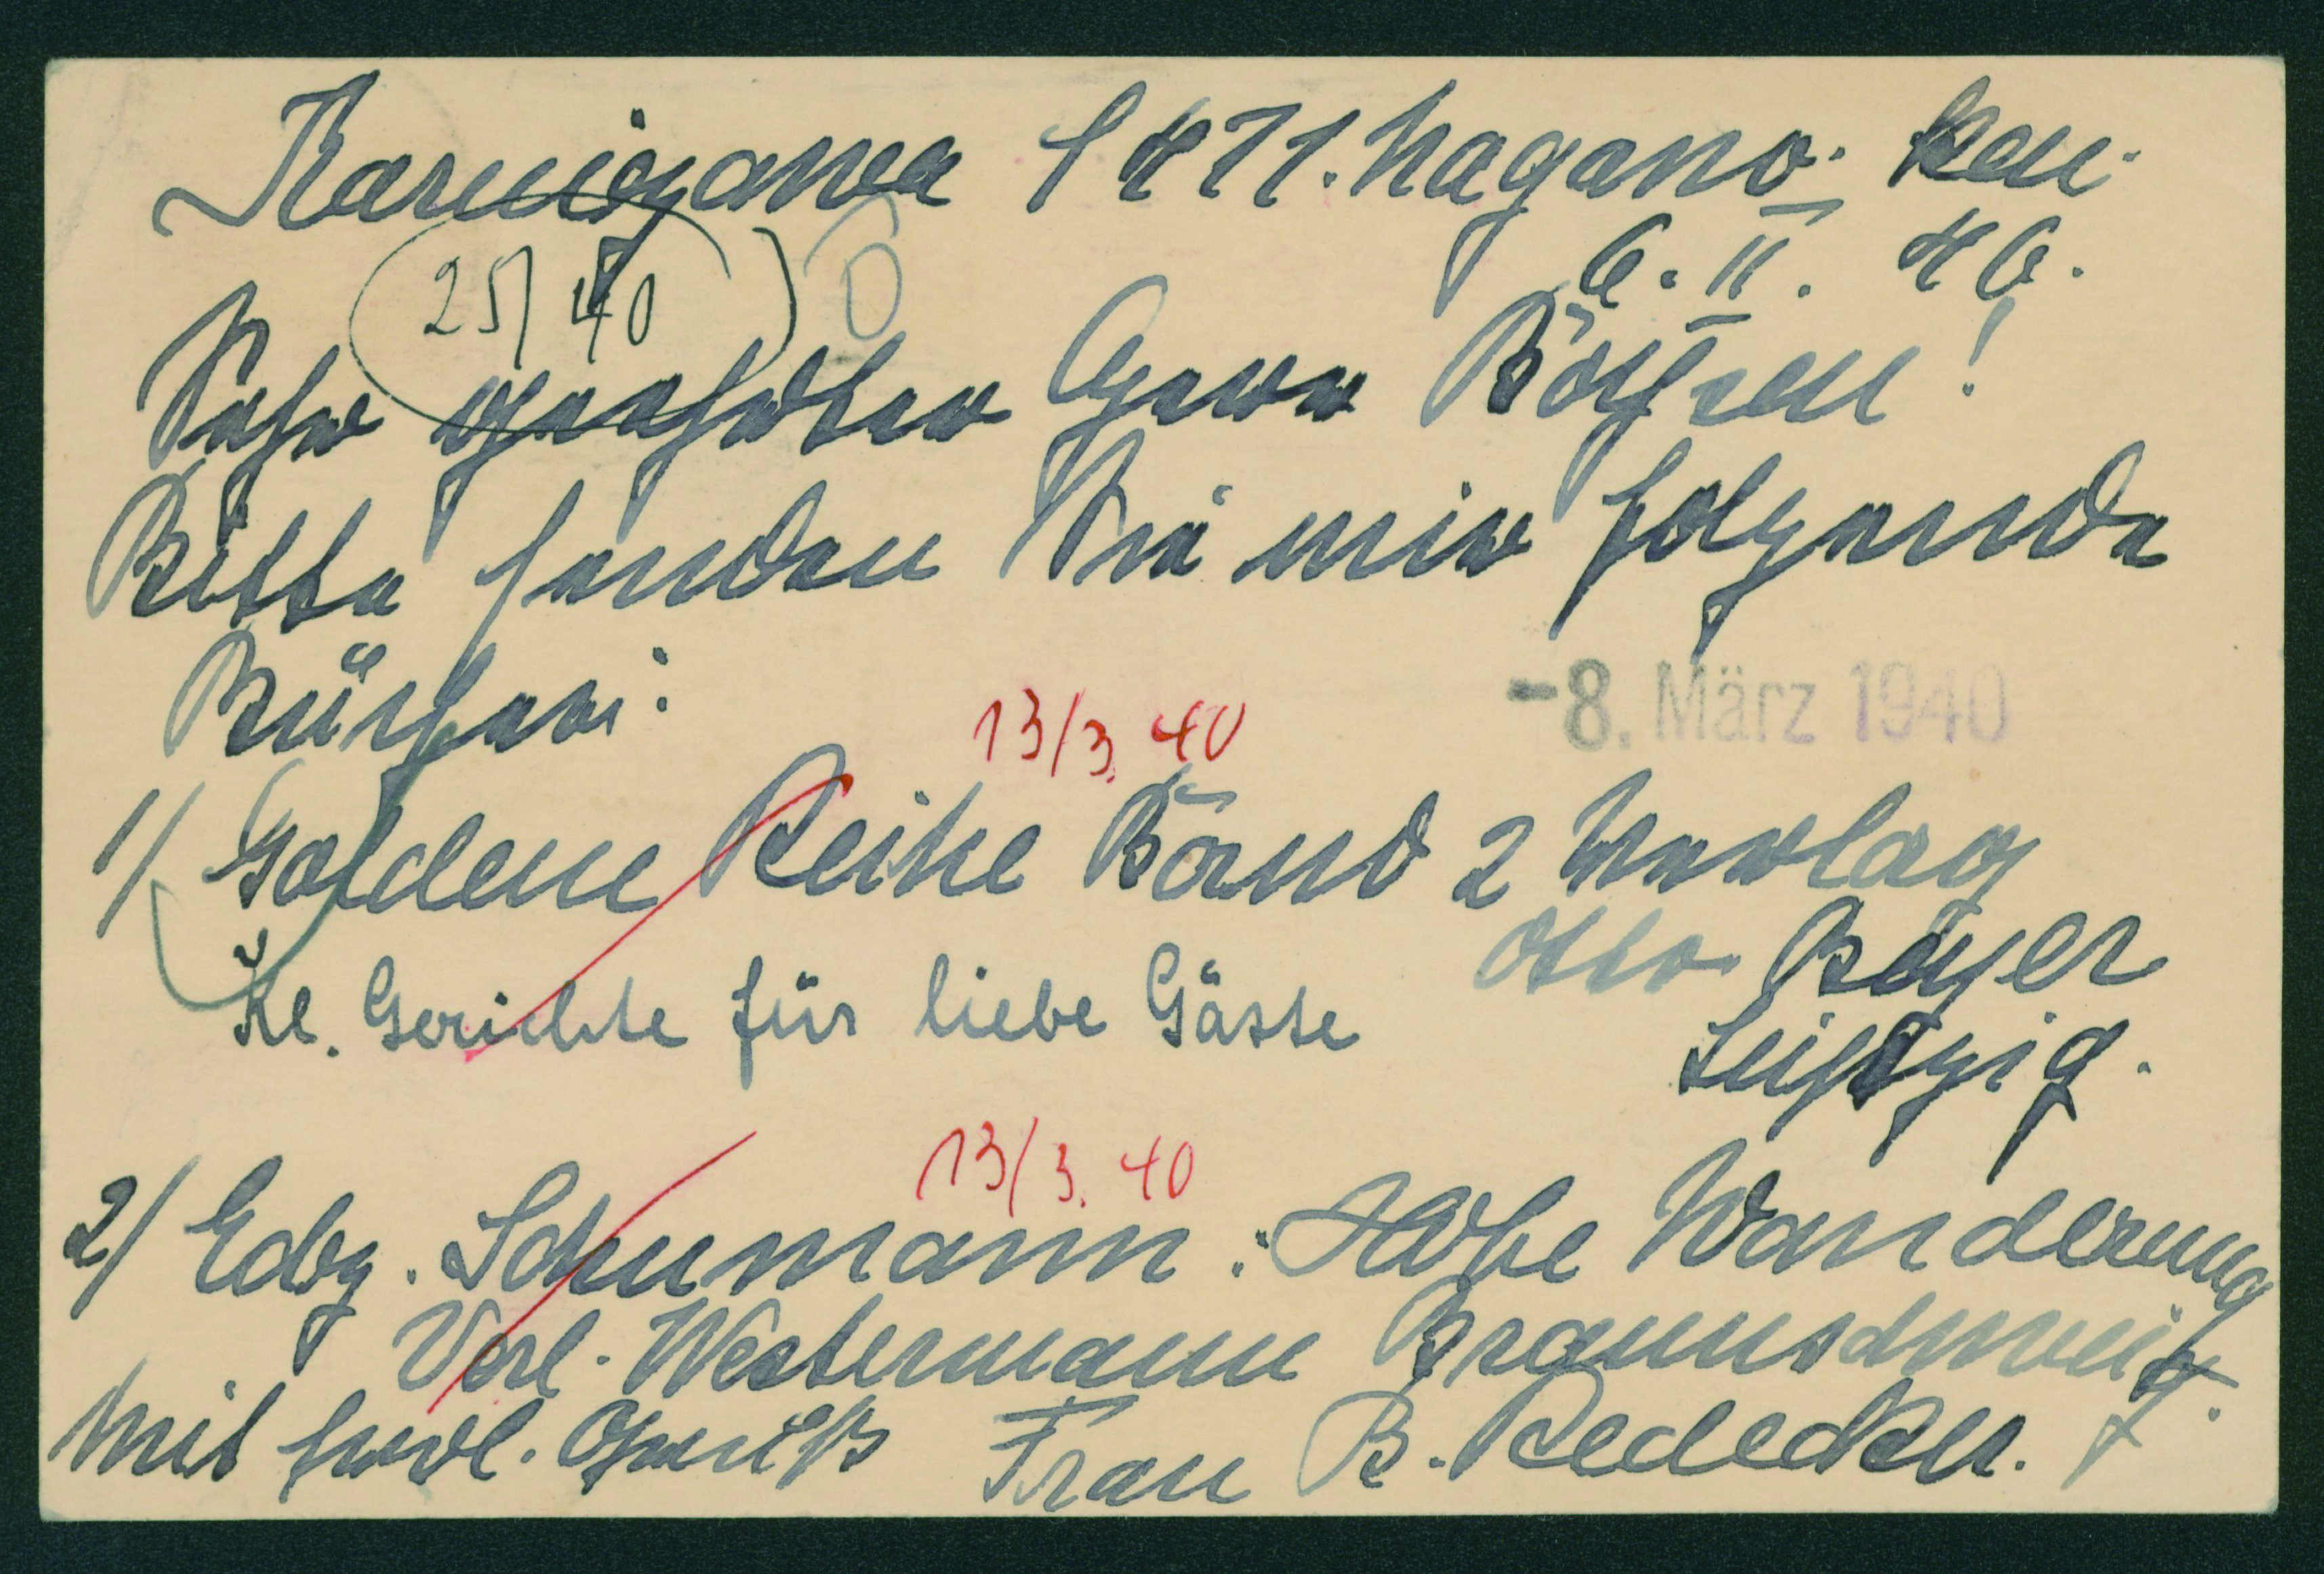 Karuigawa 1471. Nagano. Ken.
6. II. 40.
25/40
Sehr geehrter Herr Boysen!
Bitte senden Sie mir folgende
Bücher:
-8. März 1940
13/3. 40
1/ Goldene Reihe Band 2 Verlag
Otto Beyer
Kl. Gerichte für liebe Gäste
Leipzig.
13/3. 40
2/ Edg. Schumann: Wanderung
Verl. Westermann Braunschweig.
Mit frdl. Gruß Frau B. Redecker.